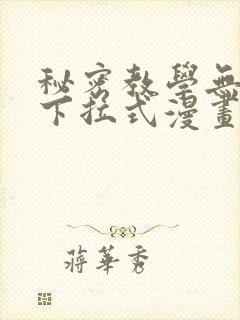 秘密教學無
下拉式漫畫
蔣華秀